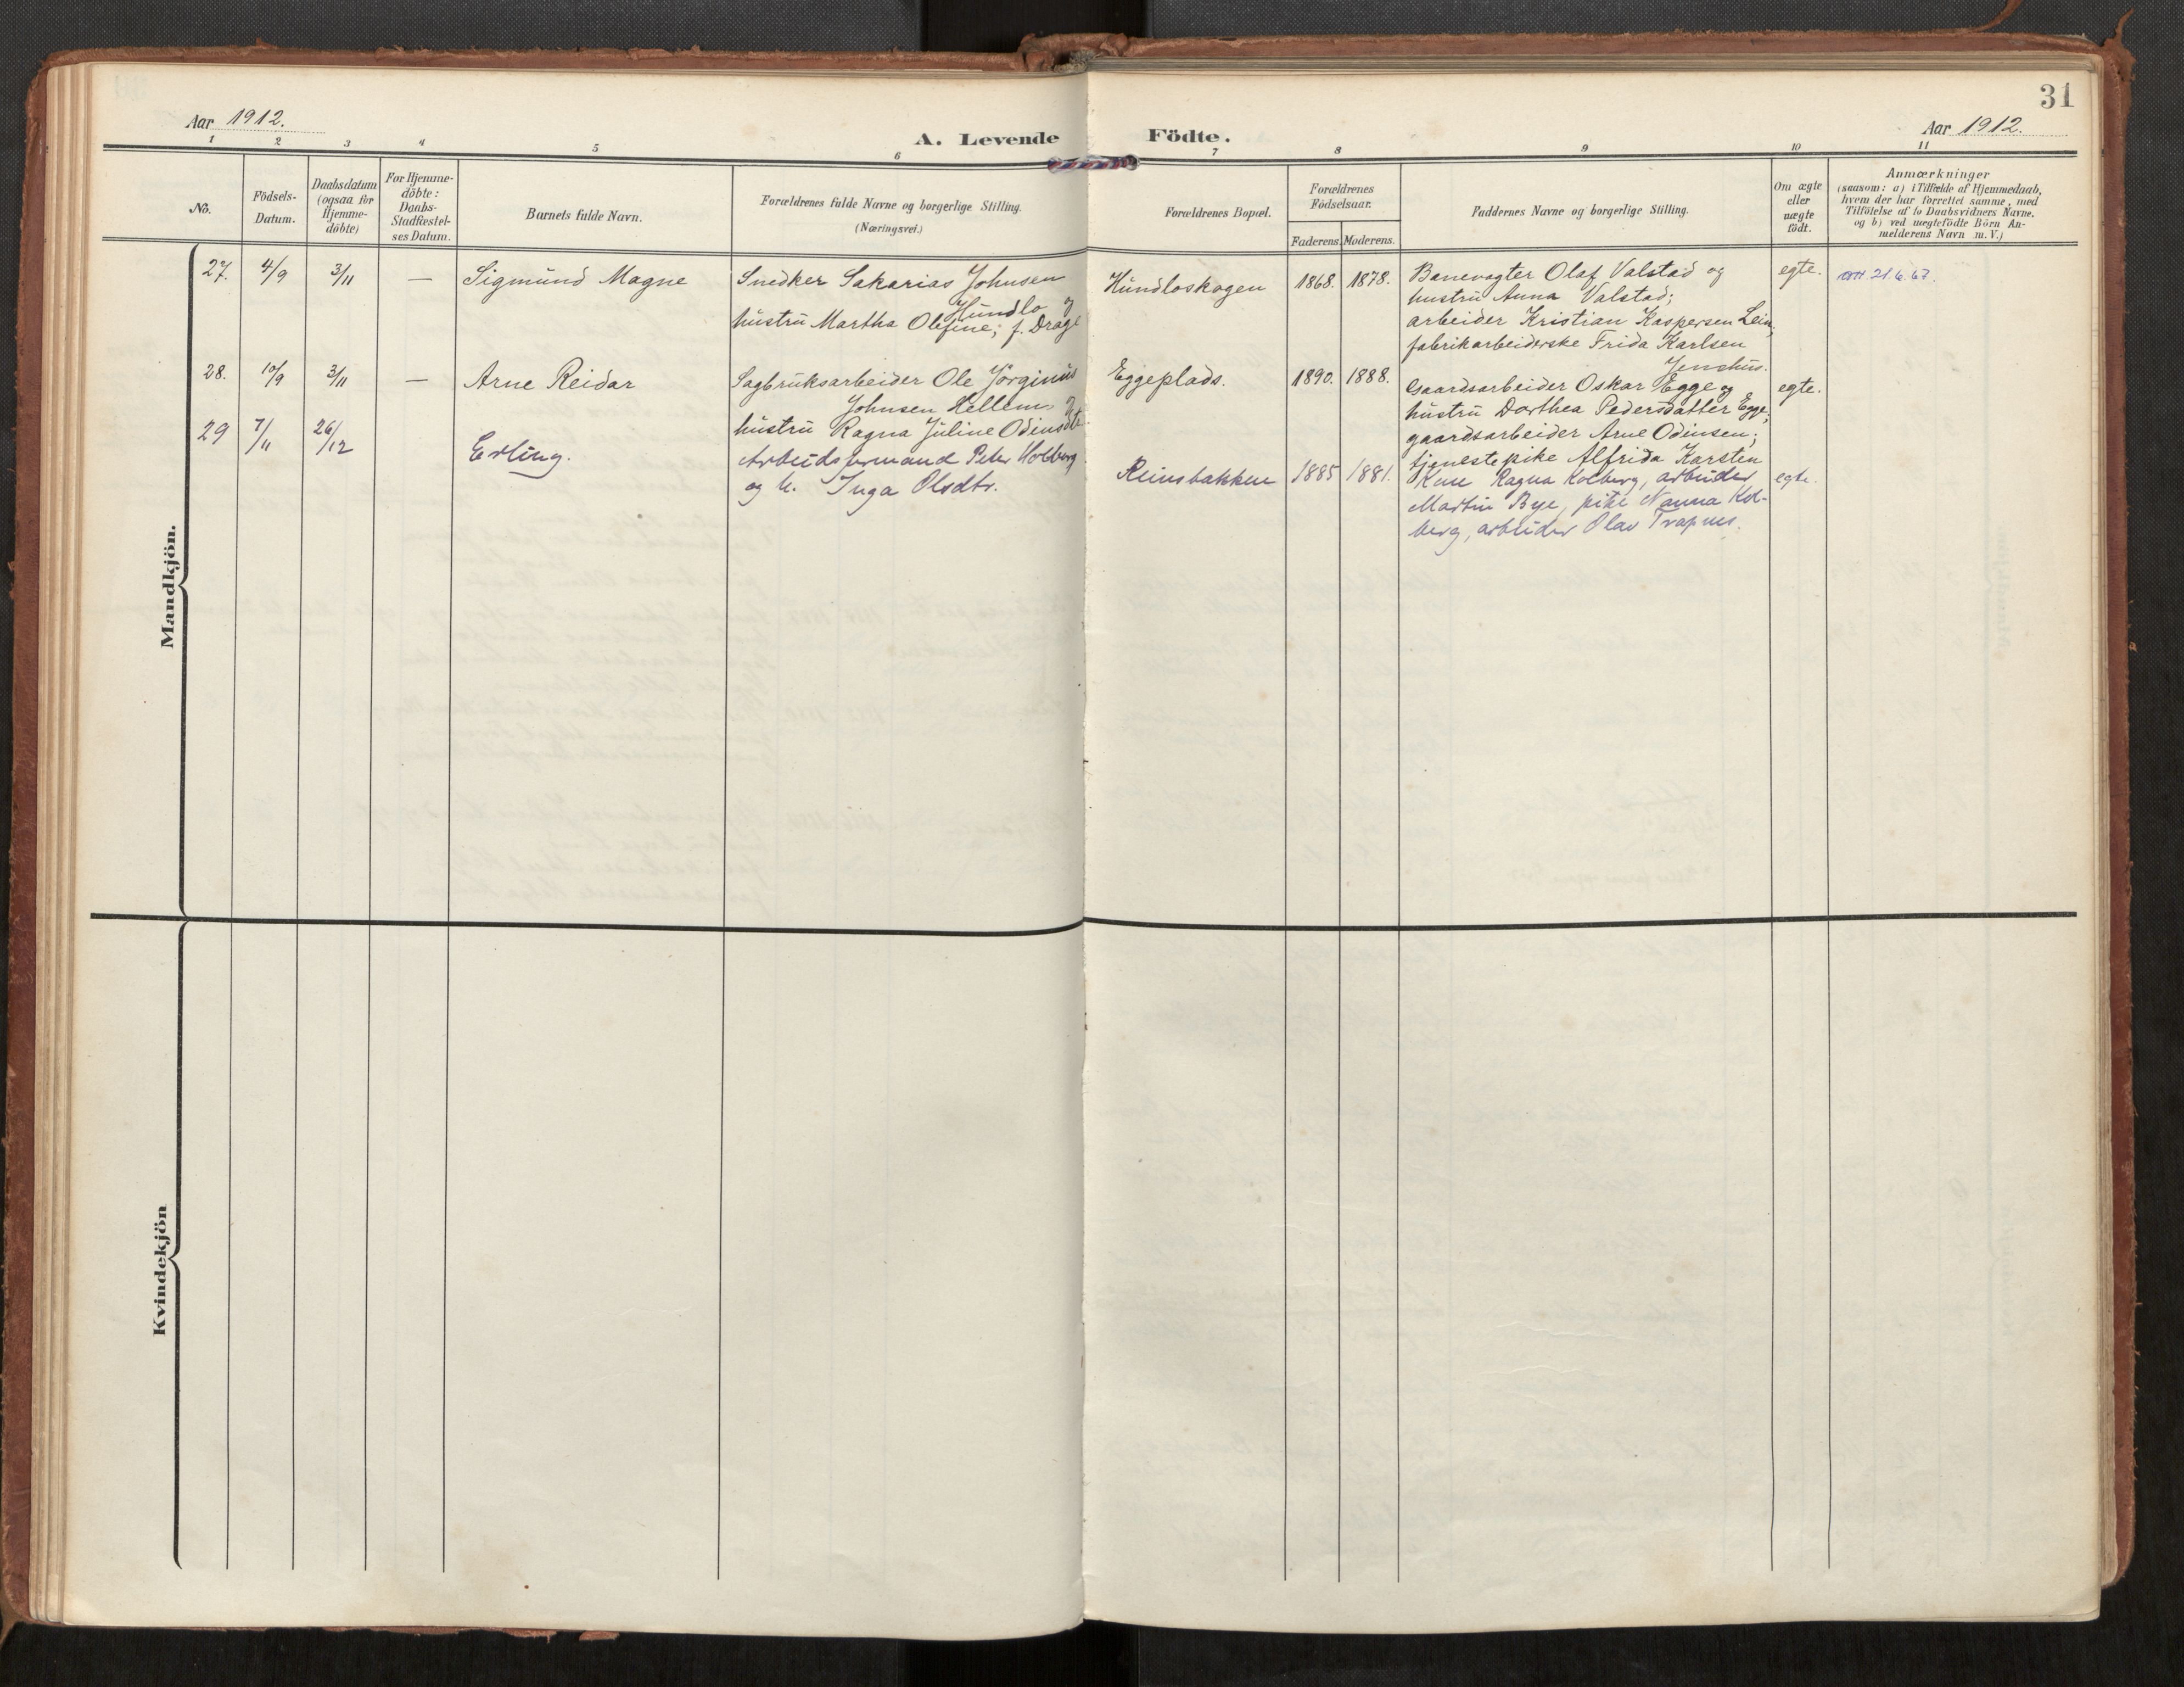 31
Aar 1912.
Aar 1912.
A. Levende Födte.
1 2 3 4 5 6 7 8 9 10 11
No.
Födsels-
Datum.
Daabsdatum
(ogsaa for
Hjemme-
döbte)
For Hjemme-
döbte:
Daabs-
Stadfæstel-
ses Datum.
Barnets fulde Navn.
Forældrenes fulde Navne og borgerlige Stilling.
(Næringsvei.)
Forældrenes Bopæl.
Forældrenes
Födselsaar.
Faderens. Moderens.
Faddernes Navne og borgerlige Stilling.
Om ægte
eller
uægte
födt.
Anmærkninger
(saasom: a) i Tilfælde af Hjemmedaab,
hvem der har forrettet samme, med
Tilföielse af to Daabsvidners Navne.
og b) ved uægtefödte Börn An-
melderens Navn m. V.)
Mandkjön.
27. 4/9 3/11 — Sigmund Magne
Snedker Sakarias Johnsen
Hundlo og
hustru Martha Olefine; f. Drage
Hundloskogen 1868. 1878.
Banevogter Olaf Valstad og
hustru Anna Valstad;
arbeider Kristian Kaspersen Lein;
fabrikarbeiderske Frida Karlsen
egte.
21.6.67.
28. 10/9 3/11 — Arne Reidar
Sagbruksarbeider Ole Jörginus
Johnsen Hellem og
hustru Ragna Juline Odinsdt.
Eggeplads. 1890. 1888.
Gaardsarbeider Oskar Egge og
hustru Dorthea Pedersdatter Egge;
gaardsarbeider Arne Odinsen;
tjenestepike Alfrida Karsten
egte.
29 7/11 26/12 Erling.
Arbeidsformand Peter Kolberg
og h. Inga Olsdtr.
Reinsbakken 1885 1881.
Kone Ragna Kolberg, arbeider
Martin Bye, pike Nanna Kol-
berg, arbeider Olav Trapnes.
egte.
Kvindekjön